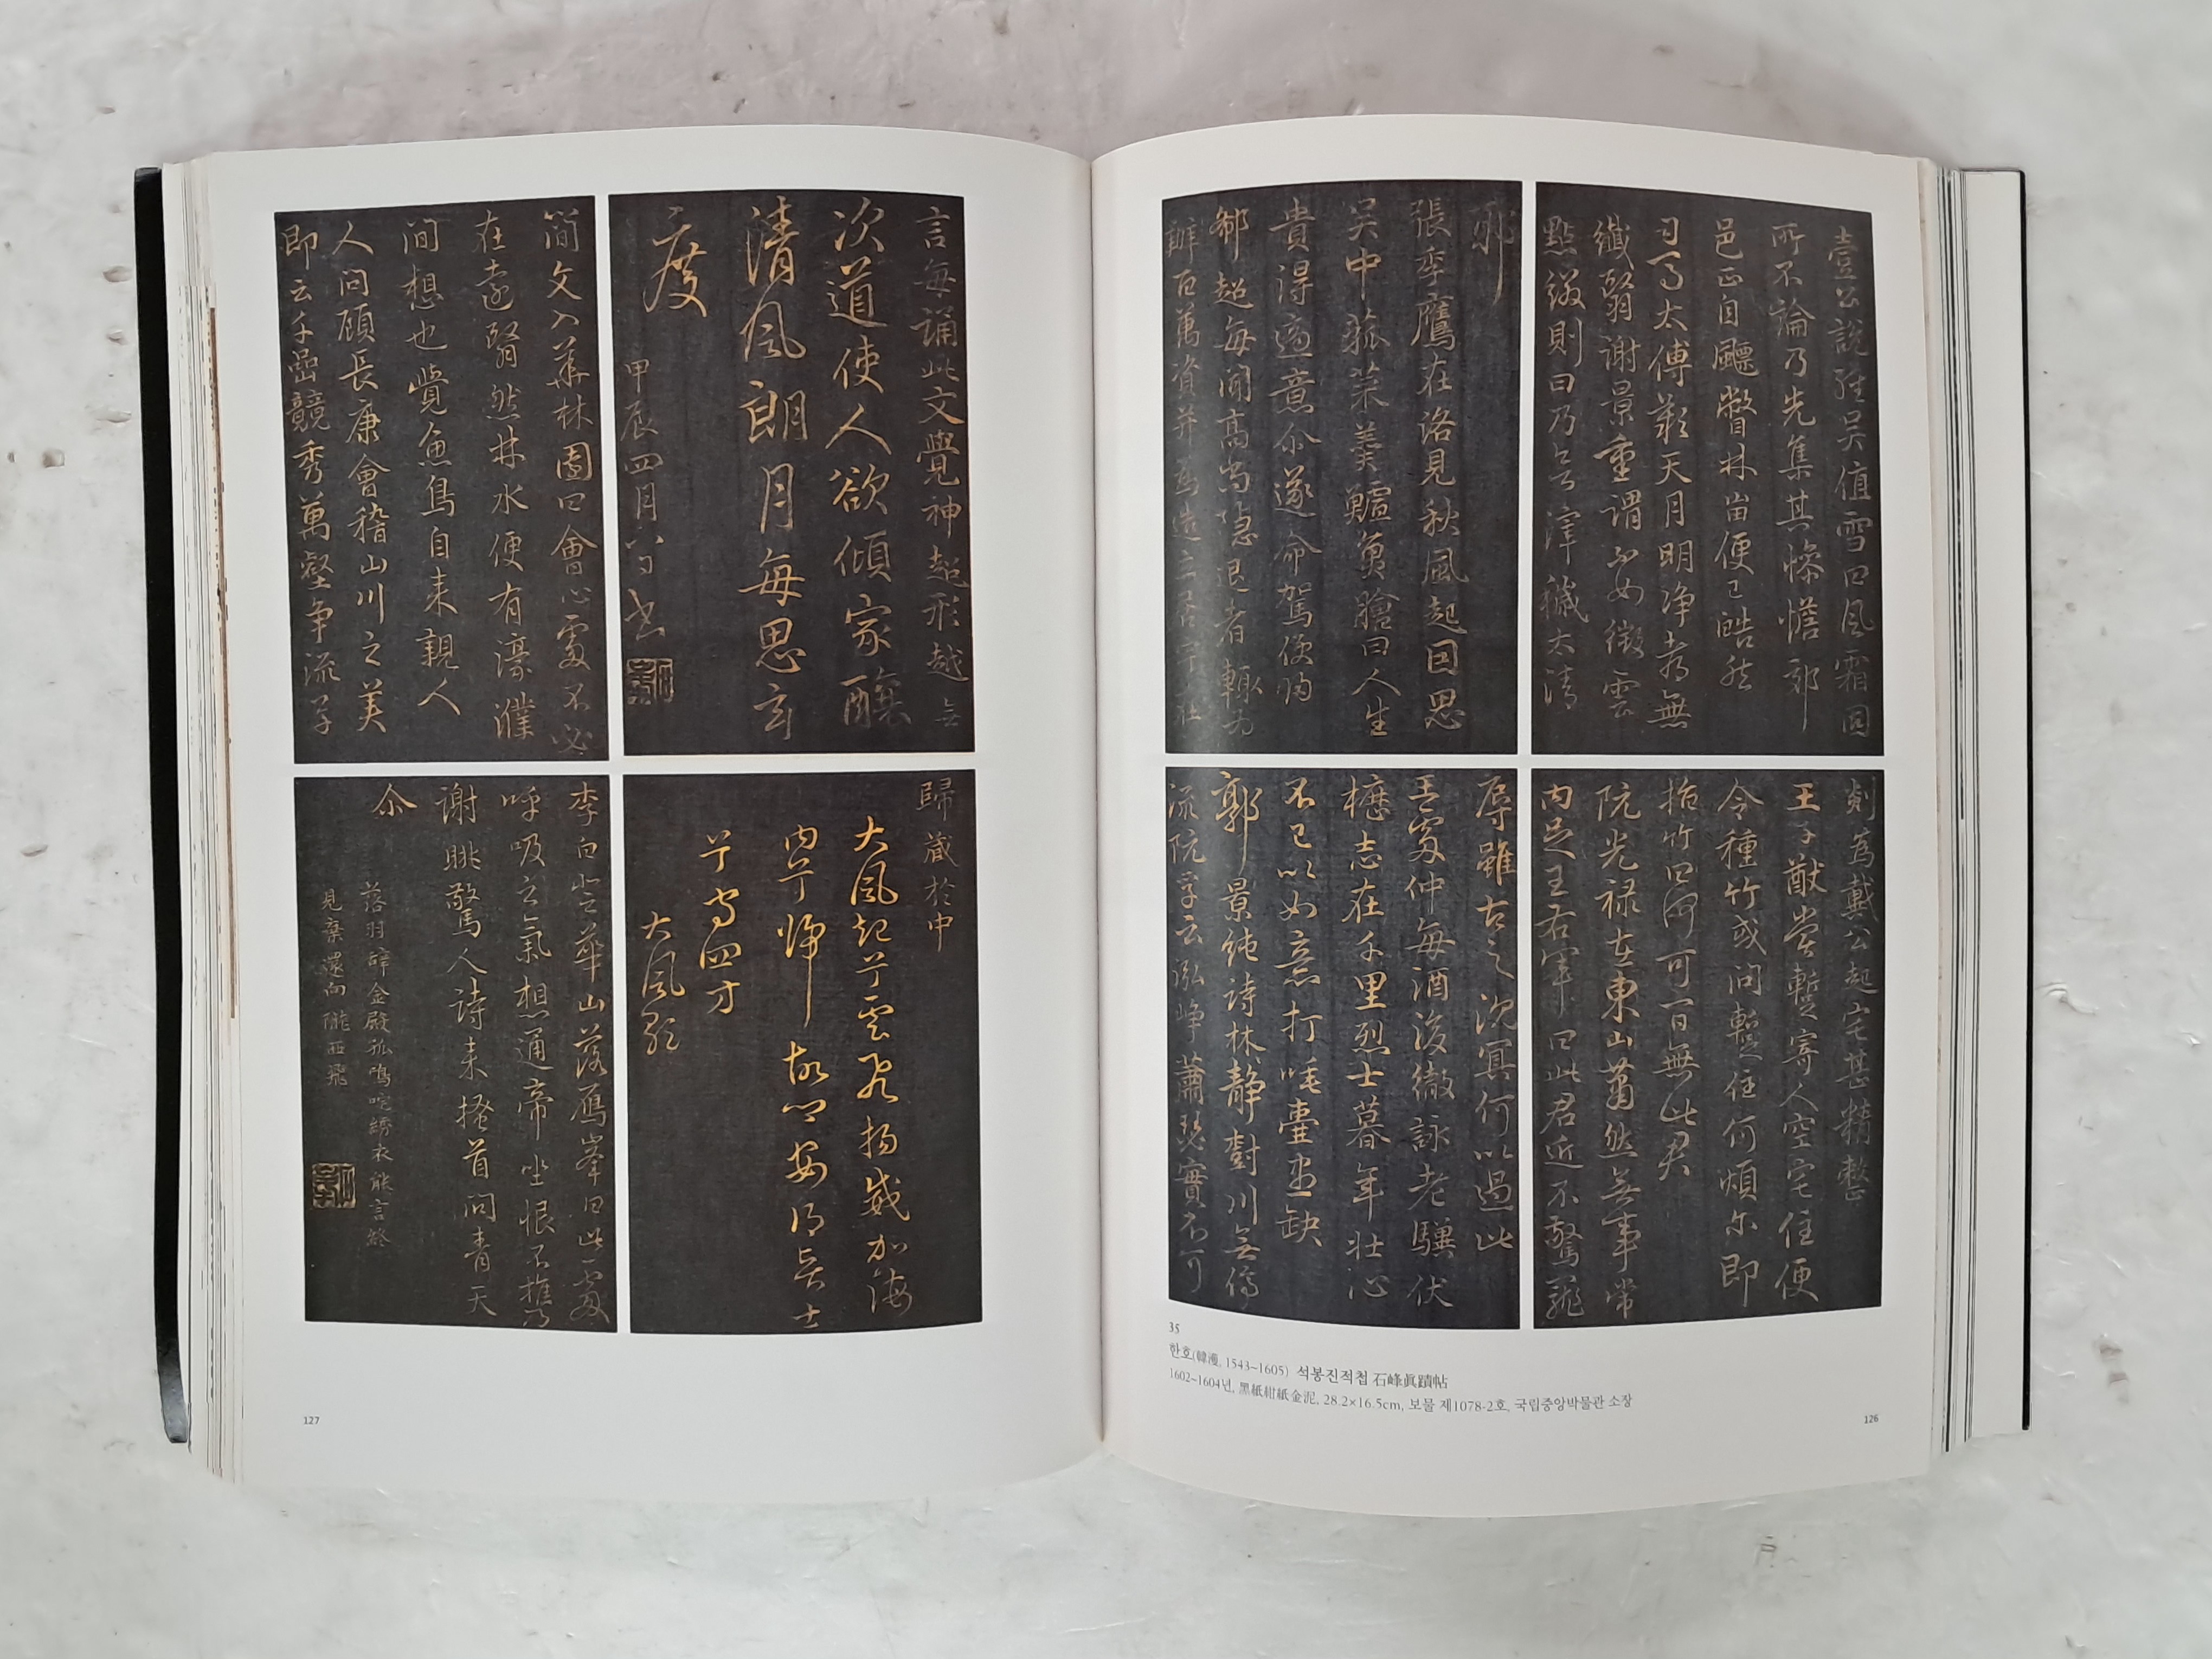 壹公說經吳值雪曰風霜固
所不論乃先集其慘憺郊
邑正自飄瞥林岫便已皓然
司馬太傅歎天月明淨都無
纖翳謝景重謂不如微雲
點綴則曰乃令滓穢太清
邪
張季鷹在洛見秋風起因思
吳中菰菜羹鱸魚膾曰人生
貴得適意尒遂命駕便歸
郗超每聞高尚隱退者輒爲
辦百萬資并爲造立居宇在
剡爲戴公起宅甚精整
王子猷嘗暫寄人空宅住便
令種竹或問暫住何煩尒即
指竹曰何可一日無此君
阮光祿在東山蕭然無事常
內足王右軍曰此君近不驚寵
辱雖古之沈冥何以過此
王處仲每酒後輒詠老驥伏
櫪志在千里烈士暮年壯心
不已以如意打唾壺盡缺
郭景純詩林靜樹川無停
流阮孚云泓崢蕭瑟實不可
35
한호(韓濩, 1543~1605) 석봉진적첩 石峰眞蹟帖
1602~1604년, 黑紙紺紙金泥, 28.2×16.5cm, 보물 제1078-2호, 국립중앙박물관 소장
126
言每誦此文覺神超形越
次道使人欲傾家釀
清風朗月每思玄
度
甲辰四月八日書
簡文入華林園曰會心處不必
在遠翳然林水便有濠濮
間想也覺魚鳥自來親人
人問顧長康會稽山川之美
即云千巖競秀萬壑爭流
歸藏於中
大風起兮雲飛揚威加海
內兮歸故鄉安得猛士
兮守四方
大風歌
李白登華山落雁峯曰此處
呼吸之氣想通帝坐恨不攜
謝脁驚人詩來搔首問青天
尒
落羽辭金殿孤鳴咤綉衣能言終
見棄還向隴西飛
127